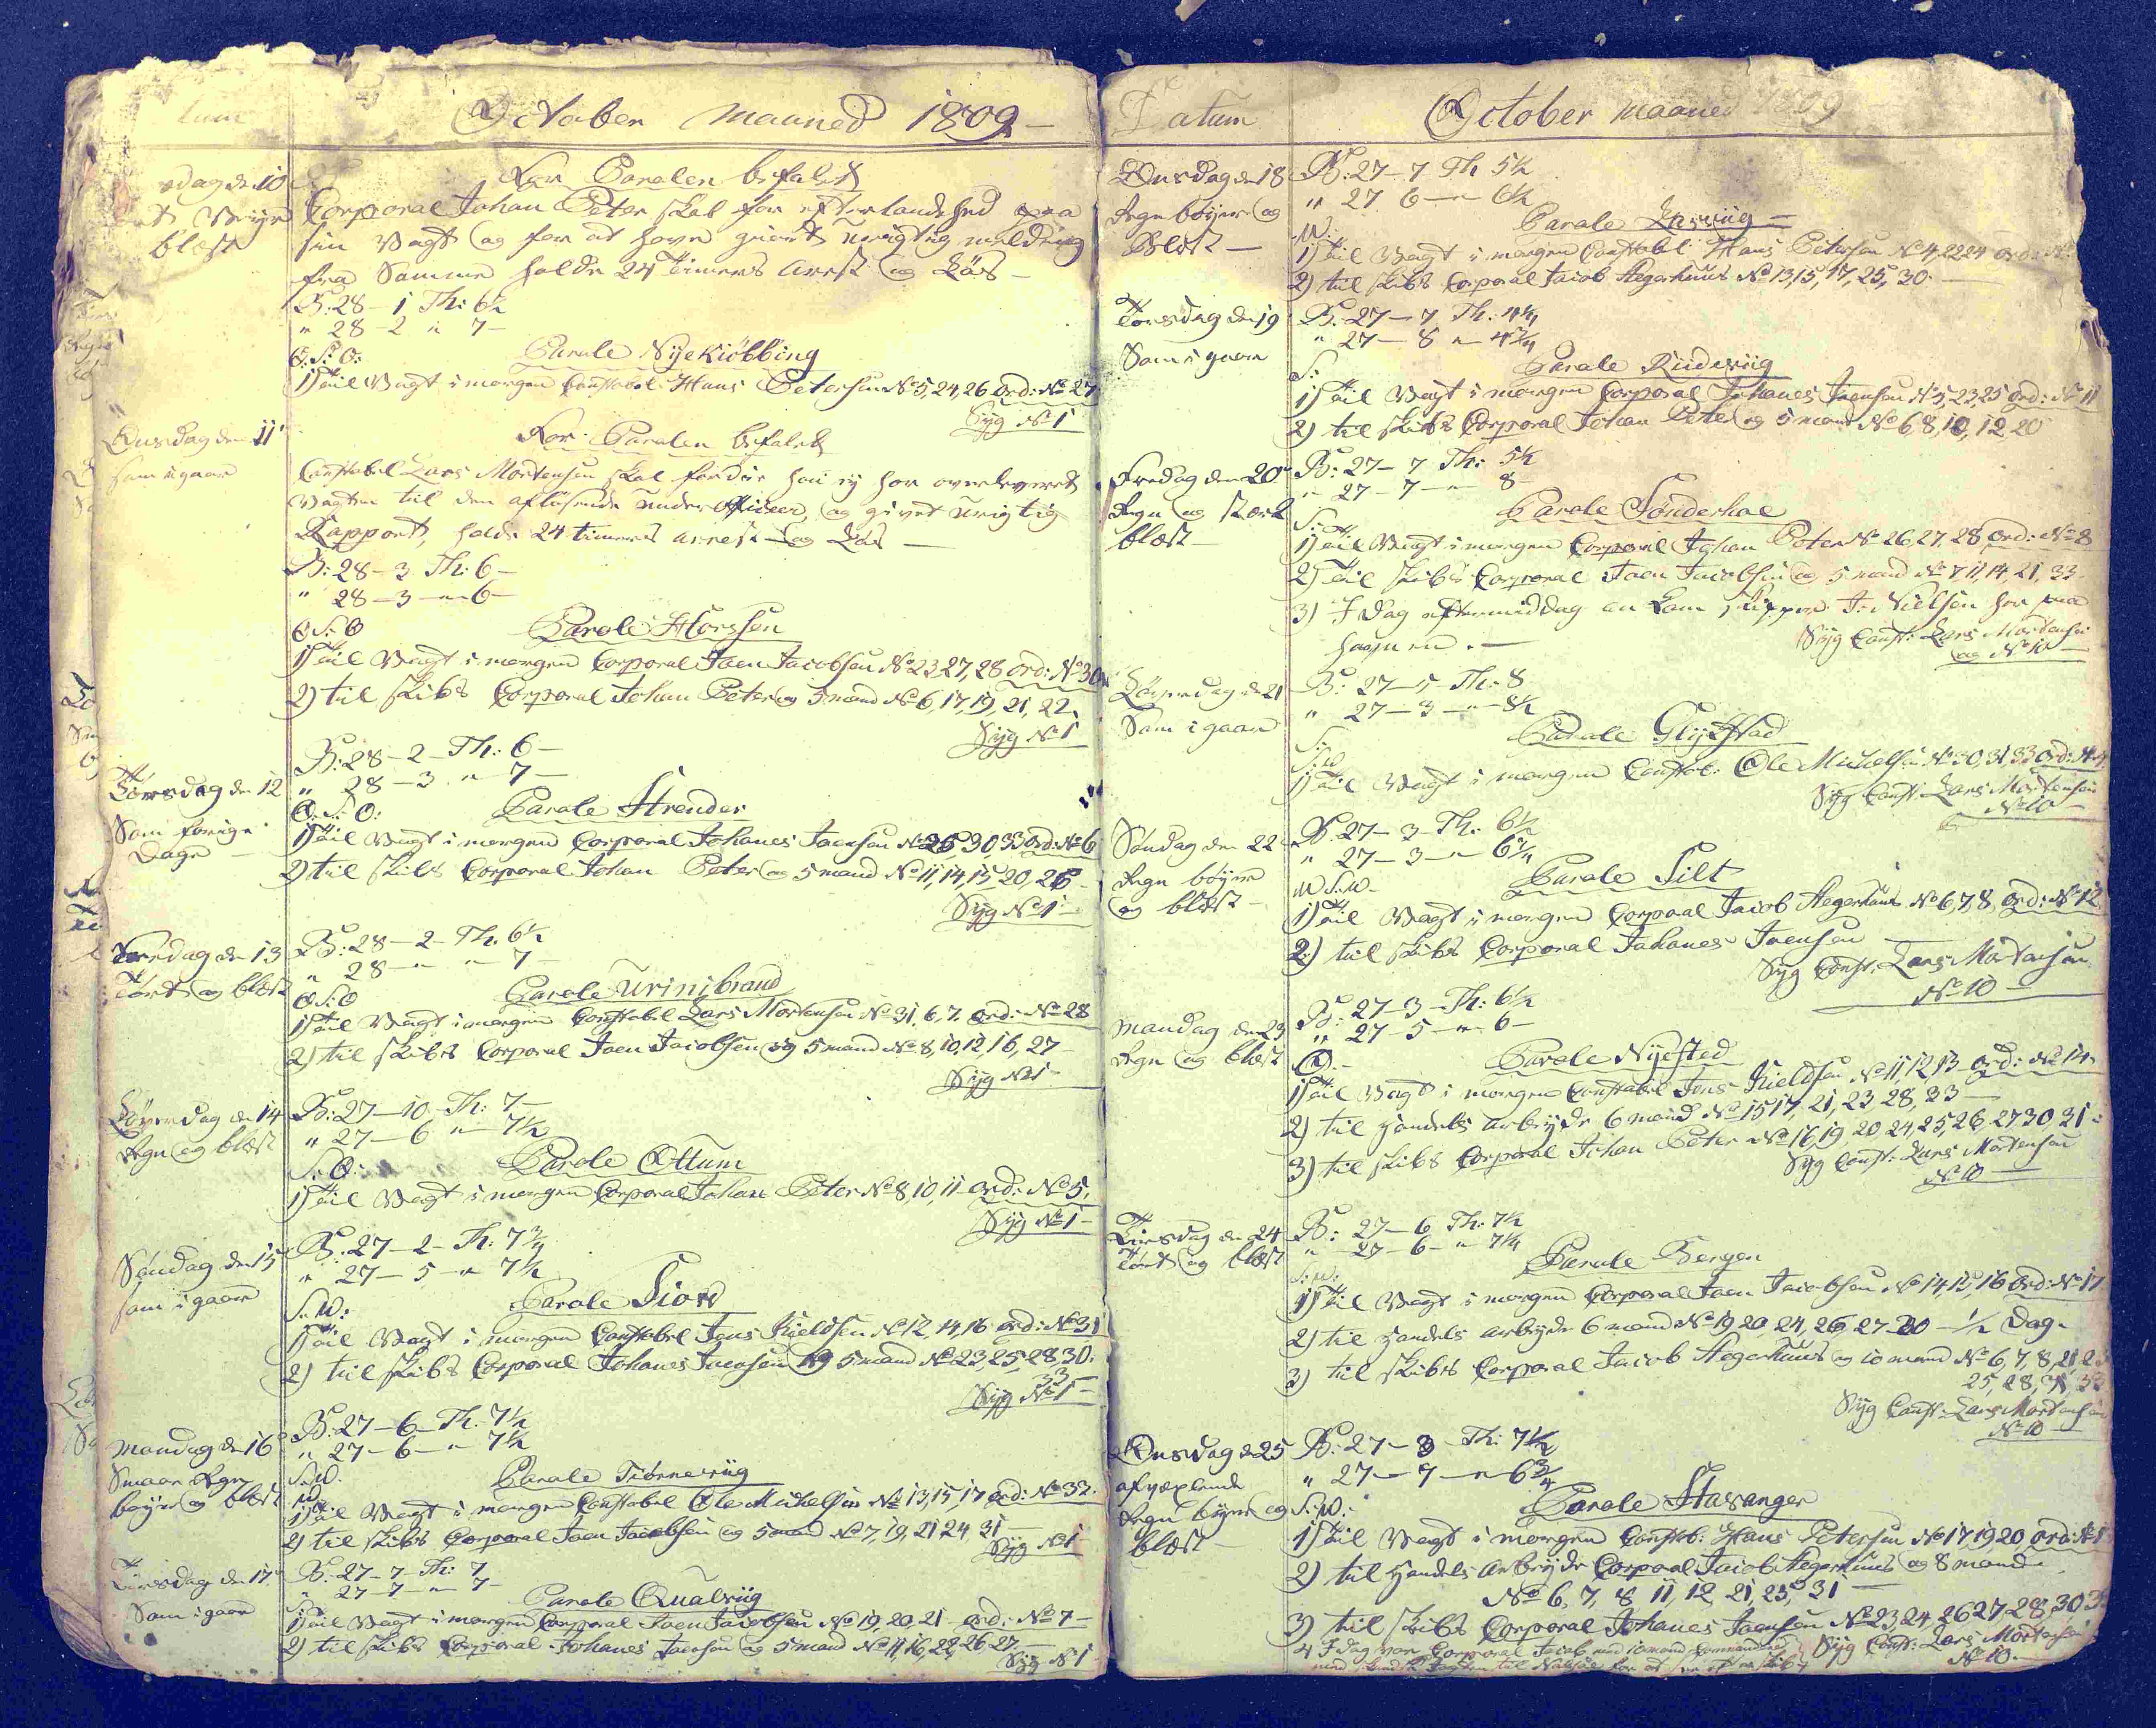 October Maaned 1809
sdag den 10
Før Parolen befalet
Corporal Johan Peter skal for efterladenhed paa
sin Vagt og for at have giort urigtig melding
fra Samme holde 24 Timers Arest og Lás
blæst
B: 28 – 1 Th: 6½
" 28 – 2 " 7 –
O. S: O:
Parole Nyekiöbbing
1) Til Vagt i morgen Constabel Hans Petersen No 5, 24, 26 Ord: No 27
Syg No 1
Onsdag den 11
Som igaar
Før Parolen befalet
Constabel Lars Mortensen skal fordi han ey har overleveret
Vagten til den aflösende Underofficeer, og givet urigtig
Rapport, holde 24 timers arrest og Lás –
B: 28 – 3 Th: 6 –
" 28 – 3 – " 6 –
O S: O
Parole Horssen
1) Til Vagt i morgen Corporal Joen Jacobsen No 23, 27, 28 Ord: No 30
2) til skibs Corporal Johan Peter og 5 mand No 6, 17, 19, 21, 22
Syg No 1
Törsdag den 12
Som forrige
Dage
B: 28 – 2 – Th: 6 –
" 28 – 3 " 7 –
O: S: O:
Parole Strender
1) Til Vagt i morgen Corporal Johanes Joensen No 25, 30, 33 Ord: No 6
2) til skibs Corporal Johan Peter og 5 mand No 11, 14, 15, 20, 26
Syg No 1
Fredag den 13
Tört og blæst
B: 28 – 2 – Th: 6½
" 28 – " " 7 –
O S: O
Parole
1) Til Vagt i morgen Constabel Lars Mortensen No 31, 6, 7. Ord: No 28
2) til skibs Corporal Joen Jacobsen og 5 mand No 8, 10, 12, 16, 27
Syg No 1
Löverdag den 14
Regn og blæst
B: 27 – 10 – Th: 7 –
" 27 – 6 " – 7½
S: O:
Parole Ottum
1) Til Vagt i morgen Corporal Johan Peter No 8, 10, 11 Ord: No 5.
Syg No 1
Söndag den 15
som igaar
B: 27 – 2 – Th: 7¾
" 27 – 5 – " 7½
S: W:
Parole Fiord
1) Til Vagt i morgen Constabel Jens Kieldsen No 12, 14, 16 Ord: No 31
2) til skibs Corporal Johanes Joensen og 5 mand No 23, 25, 28, 30.
33
Syg No 1
Mandag den 16
Smaae Regn
böyer og blæst
B: 27 – 6 – Th: 7½
" 27 – 6 – " 7½
S: W.
Parole Tiörneviig
1) Til Vagt i morgen Constabel Ole Mickelsen No 13, 15, 17 Ord: No 32.
2) til skibs Corporal Joen Jacobsen og 5 mand No 7, 19, 21 24 31
Syg No 1
Tiirsdag den 17
Som igaar
B: 27 – 7 Th: 7
" 27 – 7 – " 7 –
Parole Qualviig
1) Til Vagt i morgen Corporal Joen Jacobsen No 19, 20, 21 Ord: No 7 –
2) til skibs Corporal Johanes Joensen og 5 mand No 11, 16, 22, 26, 27.
Syg No 1
Datum
October Maaned 1809
Onsdag den 18
Regn böyer og
Blæst –
B: 27 – 7 Th 5½
" 27 6 – " 6½
W:
Parole
1) Til Vagt i morgen Constabel Hans Petersen No 4, 22 24
2) til skibs Corporal Jacob Hegerhuus No 13, 15, 17, 25, 30.
Torsdag den 19
Som igaar
B: 27 – 7. Th: 4¼
" 27 – 8 " 4¾
S:
Parole Rüdeviig
1) Til Vagt i morgen Corporal Johanes Joensen No 5, 23, 25 Ord: No 11
2) til skibs Corporal Johan Peter og 5 mand No 6, 8, 10, 12 20
Fredag den 20
Regn og stærk
blæst
B: 27 – 7 Th: 5½
" 27 – 7 – " 8 –
S:
Parole Sönderhoe
1) Til Vagt i morgen Corporal Johan Peter No 26, 27, 28 Ord: No 8
2) Til skibs Corporal Joen Jacobsen og 5 mand No 7, 11, 14, 21, 33
3) I Dag eftermiddag an kom skipper J: Nielsen her paa
havnen. –
Syg Const: Lars Mortensen
og No 10
Löverdag den 21
Som igaar
B: 27 – 5 – Th: 8
" 27 – 3 – " – 8½
S: W
Parole Glyckstad
1) Til Vagt i morgen Constab: Ole Mickelsen No 30, 31, 33 Ord: No 4
Syg Const: Lars Mortensen
No 10
Söndag den 22
Regn böyer
og blæst –
B: 27 – 3 – Th: 6½
" 27 – 3 – " 6¾
W S. W.
Parole Silt
1) Til Vagt i morgen Corporal Jacob Hegerhuus No 6, 7, 8, Ord: No 12
2) til skibs Corporal Johanes Joensen
Syg Const: Lars Mortensen
No 10 –
Mandag den 23
Regn og blæst
B: 27 – 3 – Th: 6½
" 27 – 5 – " 6 –
O. –
Parole Nyested
1) Til Vagt i morgen Constabel Jens Kieldsen No 11, 12 13 Ord: No 14
2) til handels arbeyde 6 mand No 15 17, 21, 23 28, 33 –
3) til skibs Corporal Johan Peter No 16, 19 20 24, 25, 26 27 30, 31
Syg Const: Lars Mortensen
No 10
Tiirsdag den 24
Tört og blæst
B: 27 – 6 Th: 7½
" – 27 – 6 – " 7¼
S: W:
Parole Bergen
1) Til Vagt i morgen Corporal Joen Jacobsen No 14, 15, 16 Ord: No 17
2) til handels arbeyde 6 mand No 19 20, 24, 26, 27 – 30 – ½ Dag.
3) til skibs Corporal Jacob Hegerhuus og 10 mand No 6, 7, 8, 21, 23
25, 28, 31, 33
Syg Const: Lars Mortensen
No 10
Onsdag d 25
afvexlende
Regn böyer og
blæst
B: 27 – 8 – Th: 7½
" 27 – 7 – " 6¾
S: W:
Parole Stavanger
1) Til Vagt i morgen Constab: Hans Petersen No 17, 19 20,
2) til handels arbeyde Corporal Jacob Hegerhuus og 8 mand
No 6, 7, 8 11, 12, 21, 25, 31 –
3) til skibs Corporal Johanes Joensen No 23, 24, 26 27 28, 30
4 I dag var Corporal Jacob med 10 mand
Syg Const: Lars Mortensen
No 10.